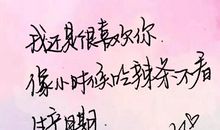 我还是很喜欢你
像小时候吃辣条不看
生产日期